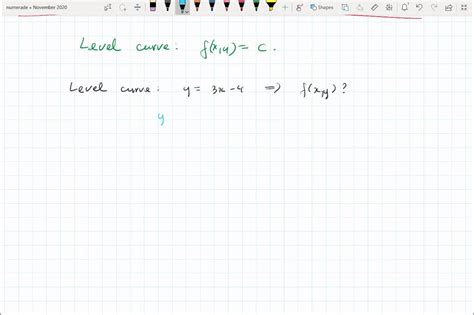 numerade » November 2020
Shapes
Level curve: f(x,y) = c.
Level curve: y = 3x - 4 => f(x,y)?
y